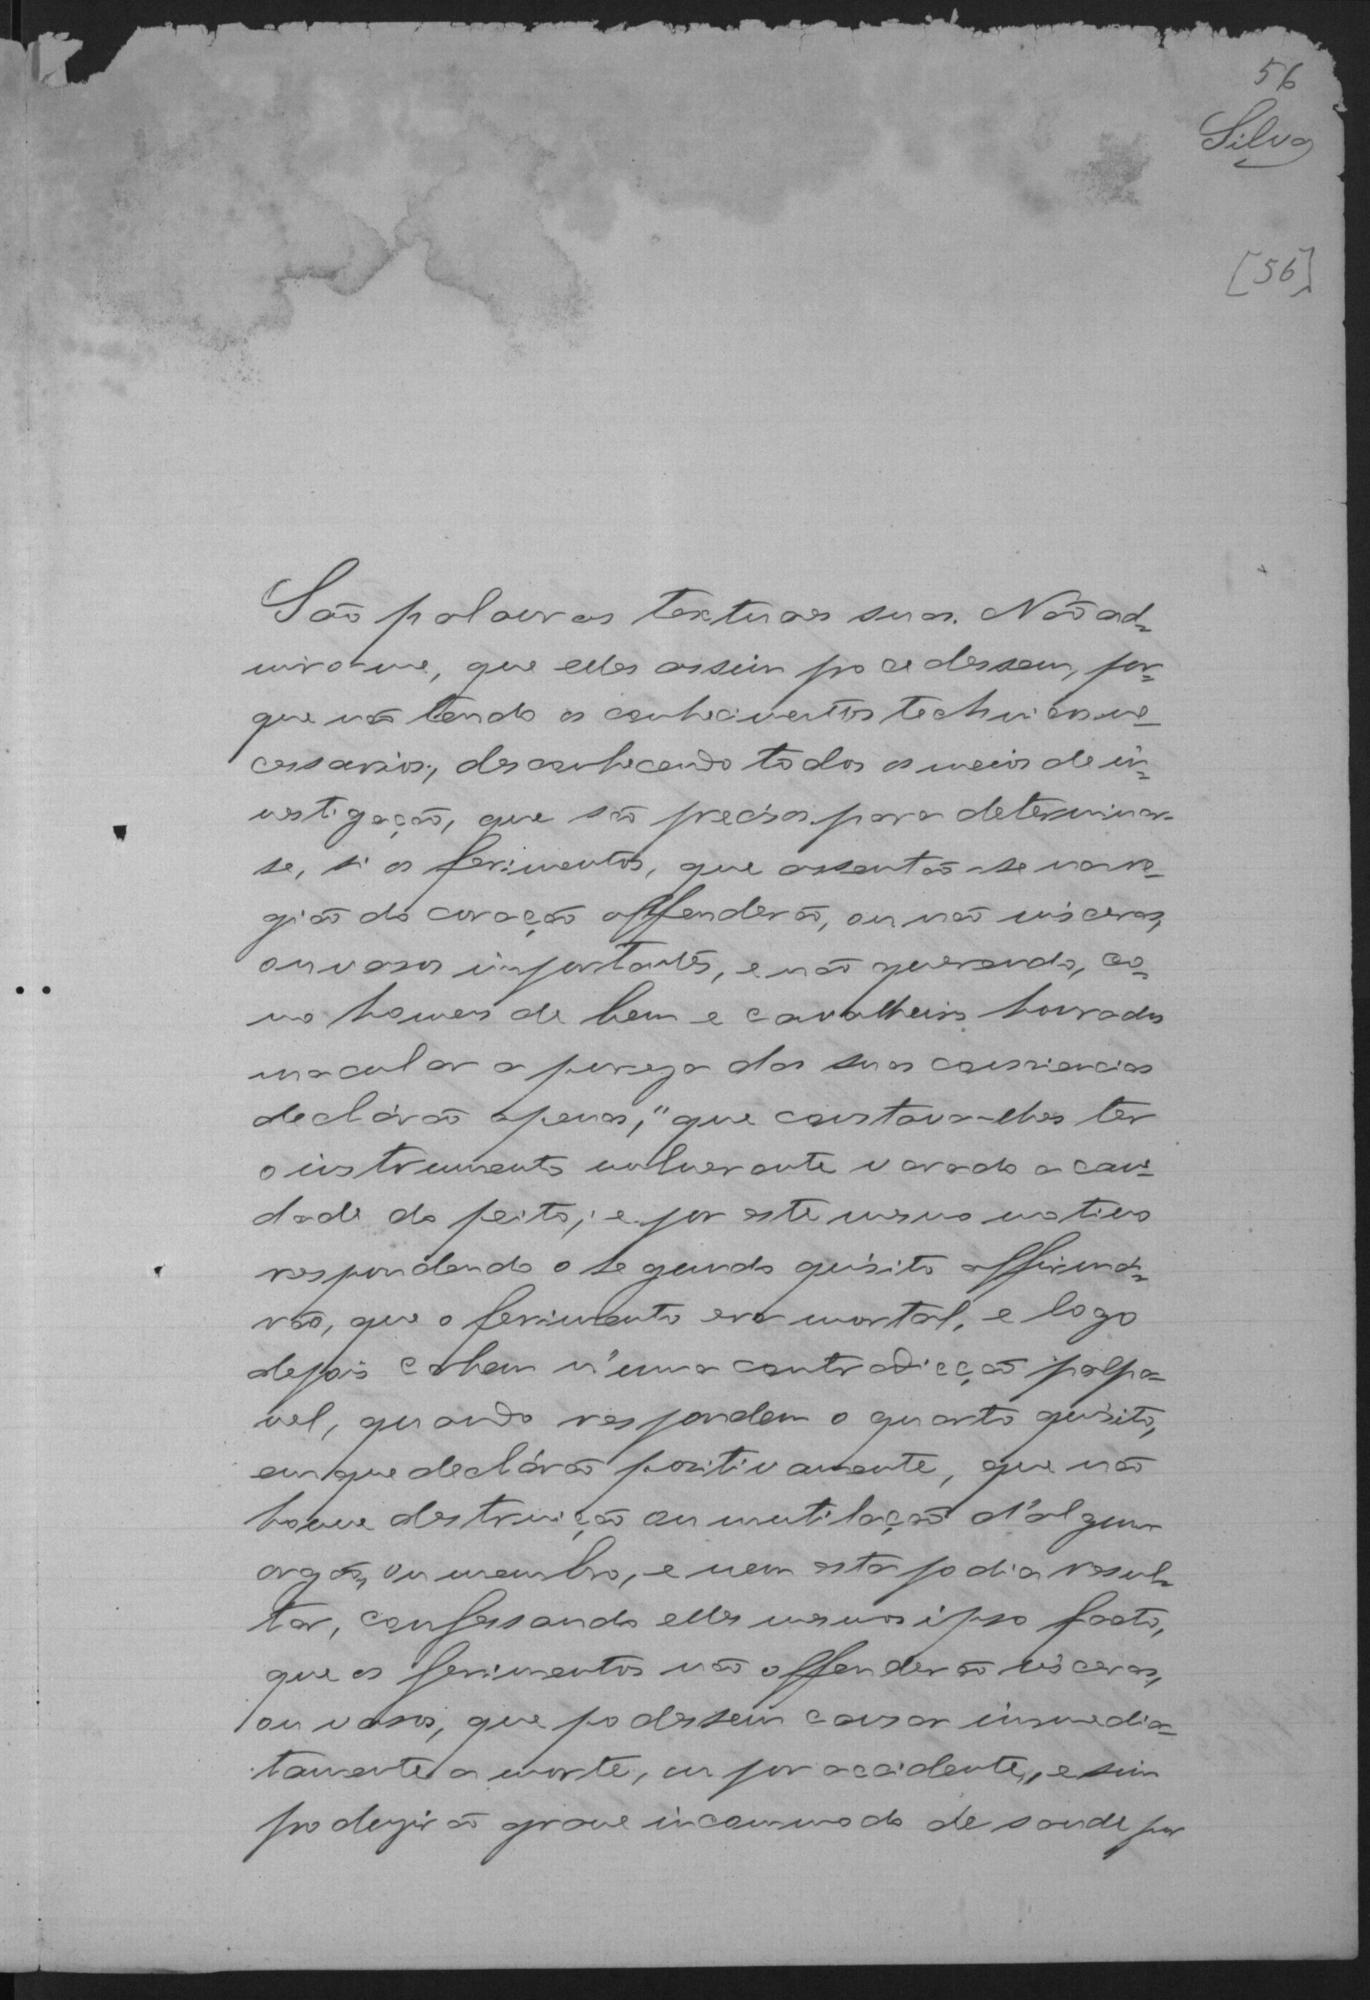 56
Silva
[56]
São palavras textuaes suas. Não ad-
miro-me, que elles assim procedessem, por-
que não tendo os conhecimentos technicos ne-
cessarios, desconhecendo todos os meios de in-
vestigação, que são precisos para determinar-
se, si os ferimentos, que assentão-se na re-
gião do coração offenderão, ou não visceras,
ou vasos importantes, e não querendo, co-
mo homens de bem e cavalheiros honrados
macular a pureza das suas consciencias
declárão apenas, "que constava-lhes ter
o instrumento vulnerante varado a cavi-
dade do peito; e por este mesmo motivo
respondendo o segundo quisito affirmá-
rão, que o ferimento era mortal, e logo
depois cahem n'uma contradicção palpa-
vel, quando respondem o quarto quisito,
em que declárão positivamente, que não
houve destruição ou mutilação d'algum
orgão, ou membro, e nem esta podia resul-
tar, confessando elles mesmos ipso facto,
que os ferimentos não offenderão visceras,
ou vasos, que podessem causar immedia-
tamente a morte, ou por accidente, e sim
produzirão grave incommodo de saude por